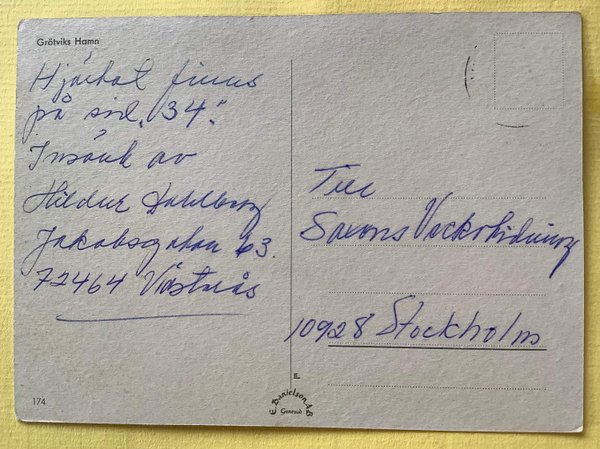 Grötviks Hamn
Hjärtat finns
på sid. "34".
Insänt av
Hildur Dahlberg
Jakobsgatan 63.
72464 Västerås
Till
Saxons Veckotidning
10928 Stockholm
174
E. Danielson A.B
Genevad